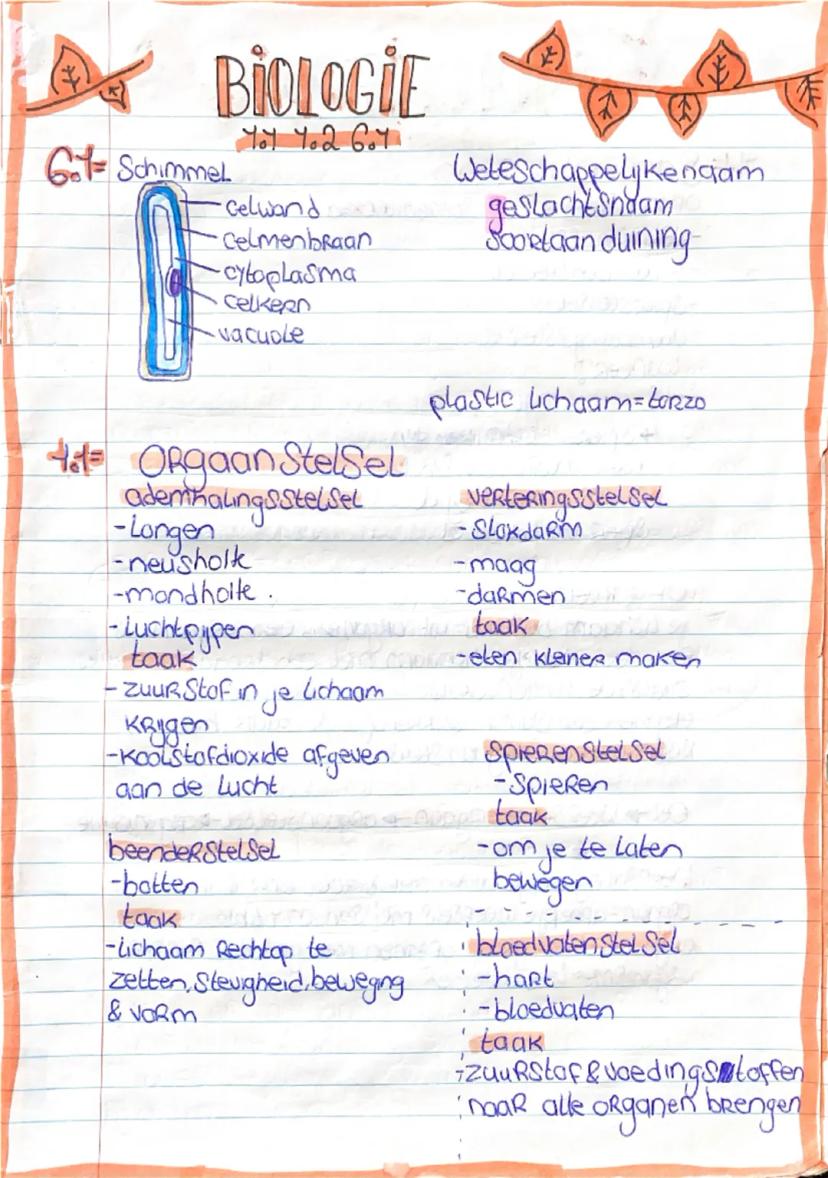 BiOLOGiE
4.1 4.2 6.1
6.1= Schimmel
celwand
celmenbraan
cytoplasma
celkern
vacuole
Weteschappelijkenaam
geslachtsnaam
soortaanduining
plastic lichaam=torzo
4.1= ORgaanStelSel
ademhalingsstelsel
-Longen
-neusholte
-mondholte.
-luchtpijpen
taak
-zuurstof in je lichaam
krijgen
-koolstofdioxide afgeven
aan de lucht
beenderstelsel
-botten
taak
-lichaam Rechtop te
zetten, stevigheid, beweging
& vorm
verteringsstelsel
-slokdarm
-maag
-darmen
taak
-eten kleiner maken
spierenstelsel
-spieren
taak
-om je te laten
bewegen
bloedvatenstelsel
-hart
-bloedvaten
taak
-zuurstof & voedingsstoffen
naar alle organen brengen